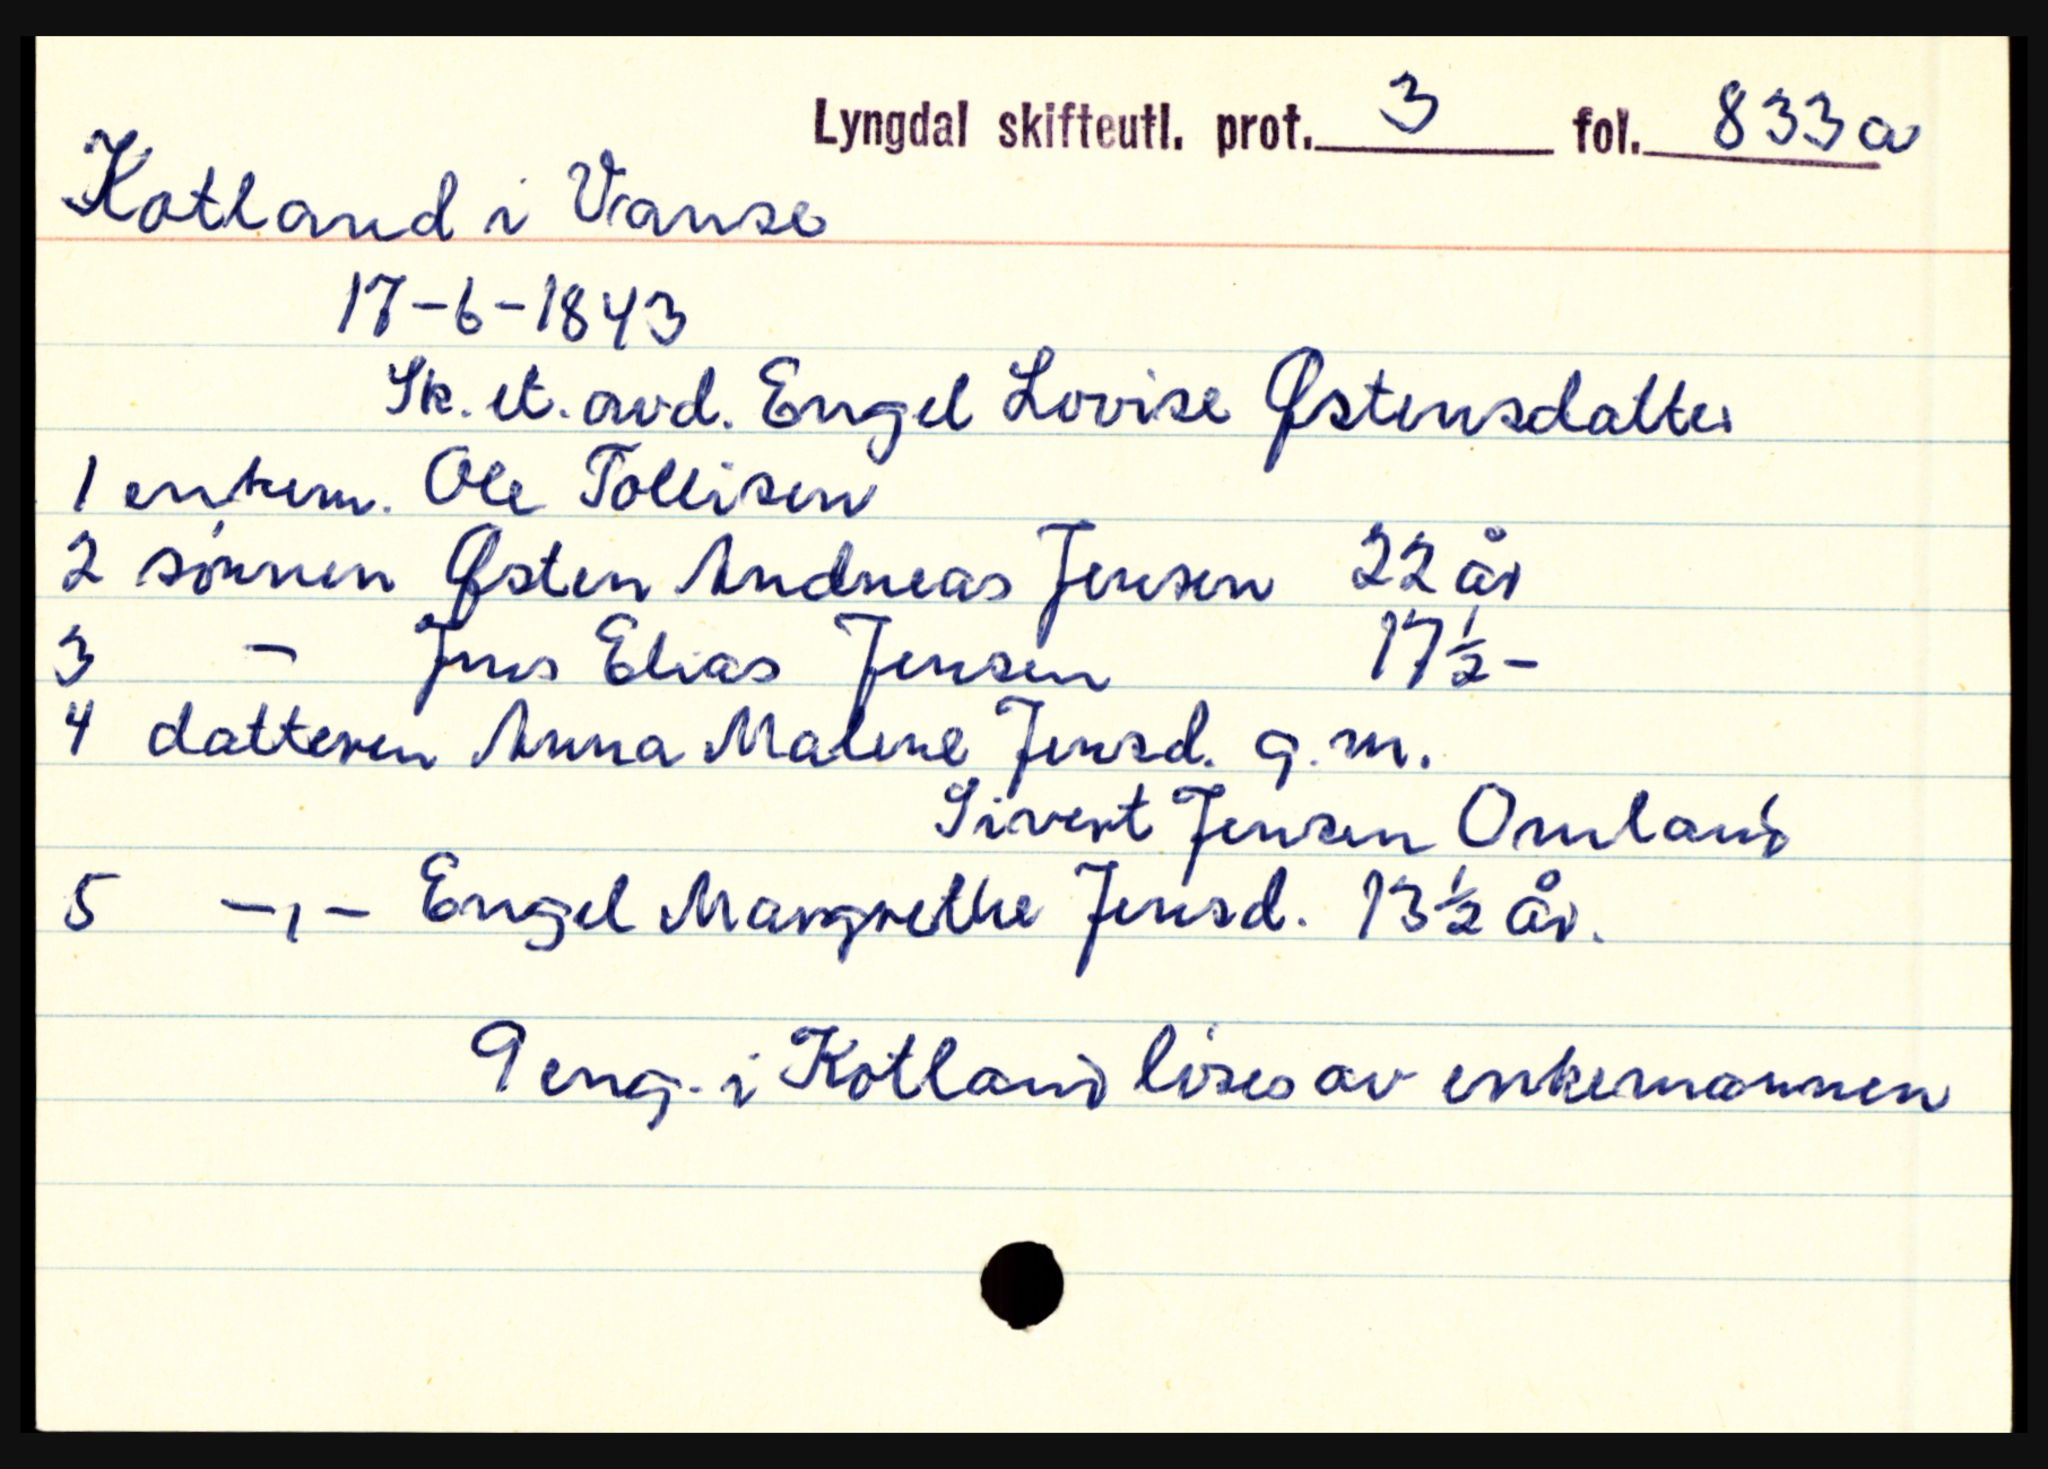 Lyngdal skifteutl. prot. 3 fol. 833a
Kotland i Vanse
17-6-1843
Sk. et. avd. Engel Lovise Østensdatter
1 enkem. Ole Tollisen
2 sønnen Østen Andreas Jensen 22 år
3 - Jens Elias Jensen 17½-
4 datteren Anna Malene Jensd. g.m.
Sivert Jensen Omland
5 -,- Engel Margrethe Jensd. 13½ år.
9 eng. i Kotland løses av enkemannen